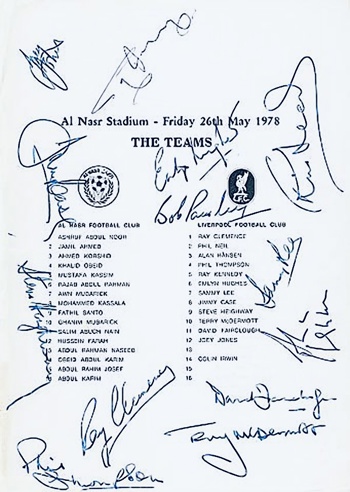 Al Nasr Stadium - Friday 26th May 1978
THE TEAMS
Emlyn Hughes
Bob Paisley
AL NASR FOOTBALL CLUB
1 ASHRUF ABDUL NOOR
2 JAMIL AHMED
3 AHMED KORSHID
4 KHALID OBEID
5 MUSTAFA KASSIM
6 RAJAB ABDUL RAHMAN
7 AWN MUBARICK
MOHAMMED KASSALA
FATHIL SANTO
GHANIM MUBARICK
SALIM ABUCH NAIM
HUSSEIN FARAH
ABDUL RAHMAN NASEEB
OBEID ABDUL KARIM
ABDUL RAHIM JOSEF
ABDUL KARIM
LFC
LIVERPOOL FOOTBALL CLUB
1 RAY CLEMENCE
2 PHIL NEIL
3 ALAN HANSEN
4 PHIL THOMPSON
5 RAY KENNEDY
6 EMLYN HUGHES
7 SAMMY LEE
8 JIMMY CASE
9 STEVE HEIGHWAY
10 TERRY McDERMOTT
11 DAVID FAIRCLOUGH
12 JOEY JONES
13
14 COLIN IRWIN
15
16
Sammy Lee
Ray Clemence
David Fairclough
Terry McDermott
Phil Thompson